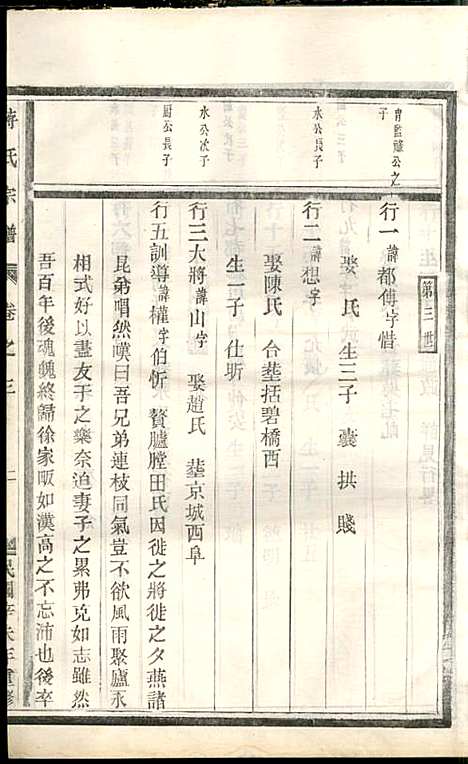 第三世
胄監隨公之子
行一諱都傅字惜
娶 氏 生三子 囊 拱 賤
水公長子
行二諱想字
娶陳氏 合塟括碧橋西
水公次子
行三大將諱山字 娶趙氏 塟京城西阜
生一子 仕圻
尉公長子
行五訓導諱權字伯忻 贅臚膛田氏因徙之將徙之夕燕諸
昆弟喟然嘆曰吾兄弟連枝同氣豈不欲風雨聚廬永
相式好以盡友于之樂奈迫妻子之累弗克如志雖然
吾百年後魂魄終歸徐家畈如漢高之不忘沛也後卒
蔣氏宗譜 卷之三 二 民國辛未三重修